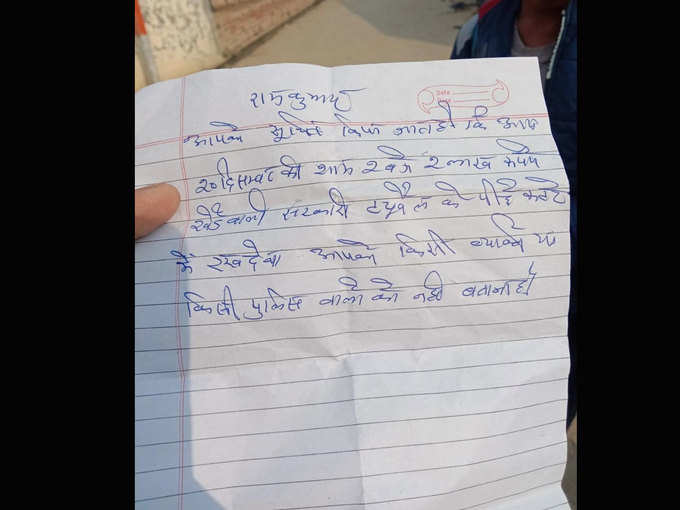 रामकुमार
Date
आपको सूचित किया जाता है कि आप
20 दिसम्बर को शाम 2 बजे 2 लाख रूपये
वाली सरकारी ट्यूबेल के पीछे कट्टे
में रख देना आपको किसी व्यक्ति या
किसी पुलिस वाले को नही बताना है